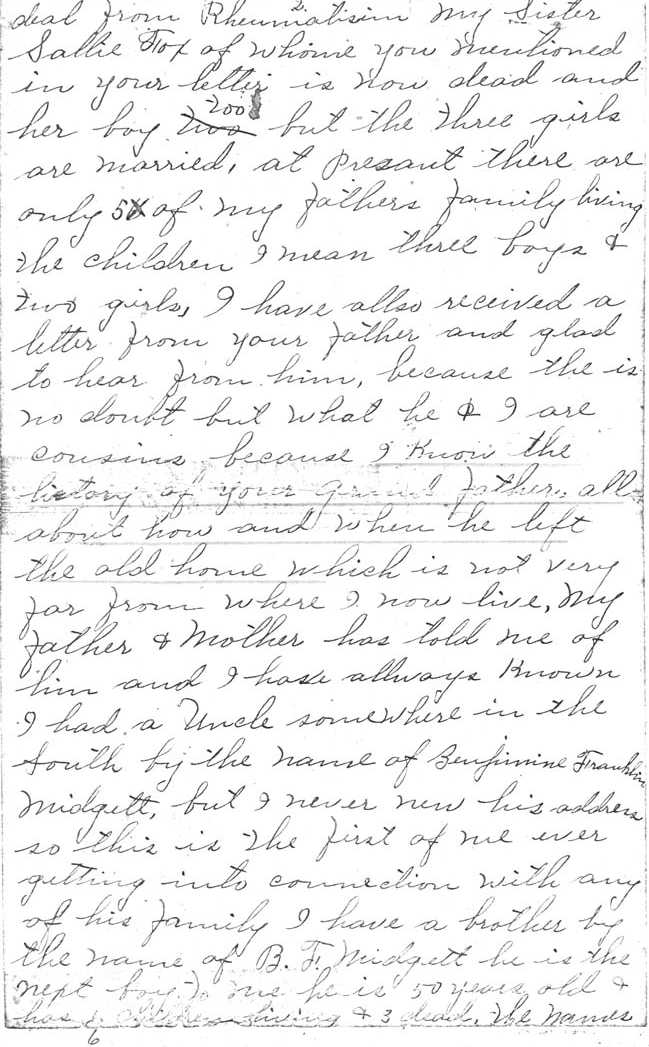 deal from Rheumatisim my Sister
Sallie Fox of whome you mentioned
in your letter is now dead and
her boy two too but the three girls
are married, at presant there are
only 5 of my fathers family living
the children I mean three boys &
two girls, I have allso received a
letter from your father and glad
to hear from him, because the is
no doubt but what he & I are
cousins because I know the
history of your Grand father, all
about how and when he left
the old home which is not very
far from where I now live, my
father & Mother has told me of
him and I have allways known
I had a Uncle somewhere in the
South by the name of Benjimine Franklin
Midgett, but I never new his address
so this is the first of me ever
getting into connection with any
of his family I have a brother by
the name of B. F. Midgett he is the
next boy to me he is 50 years old &
has 6 children living & 3 dead, the names